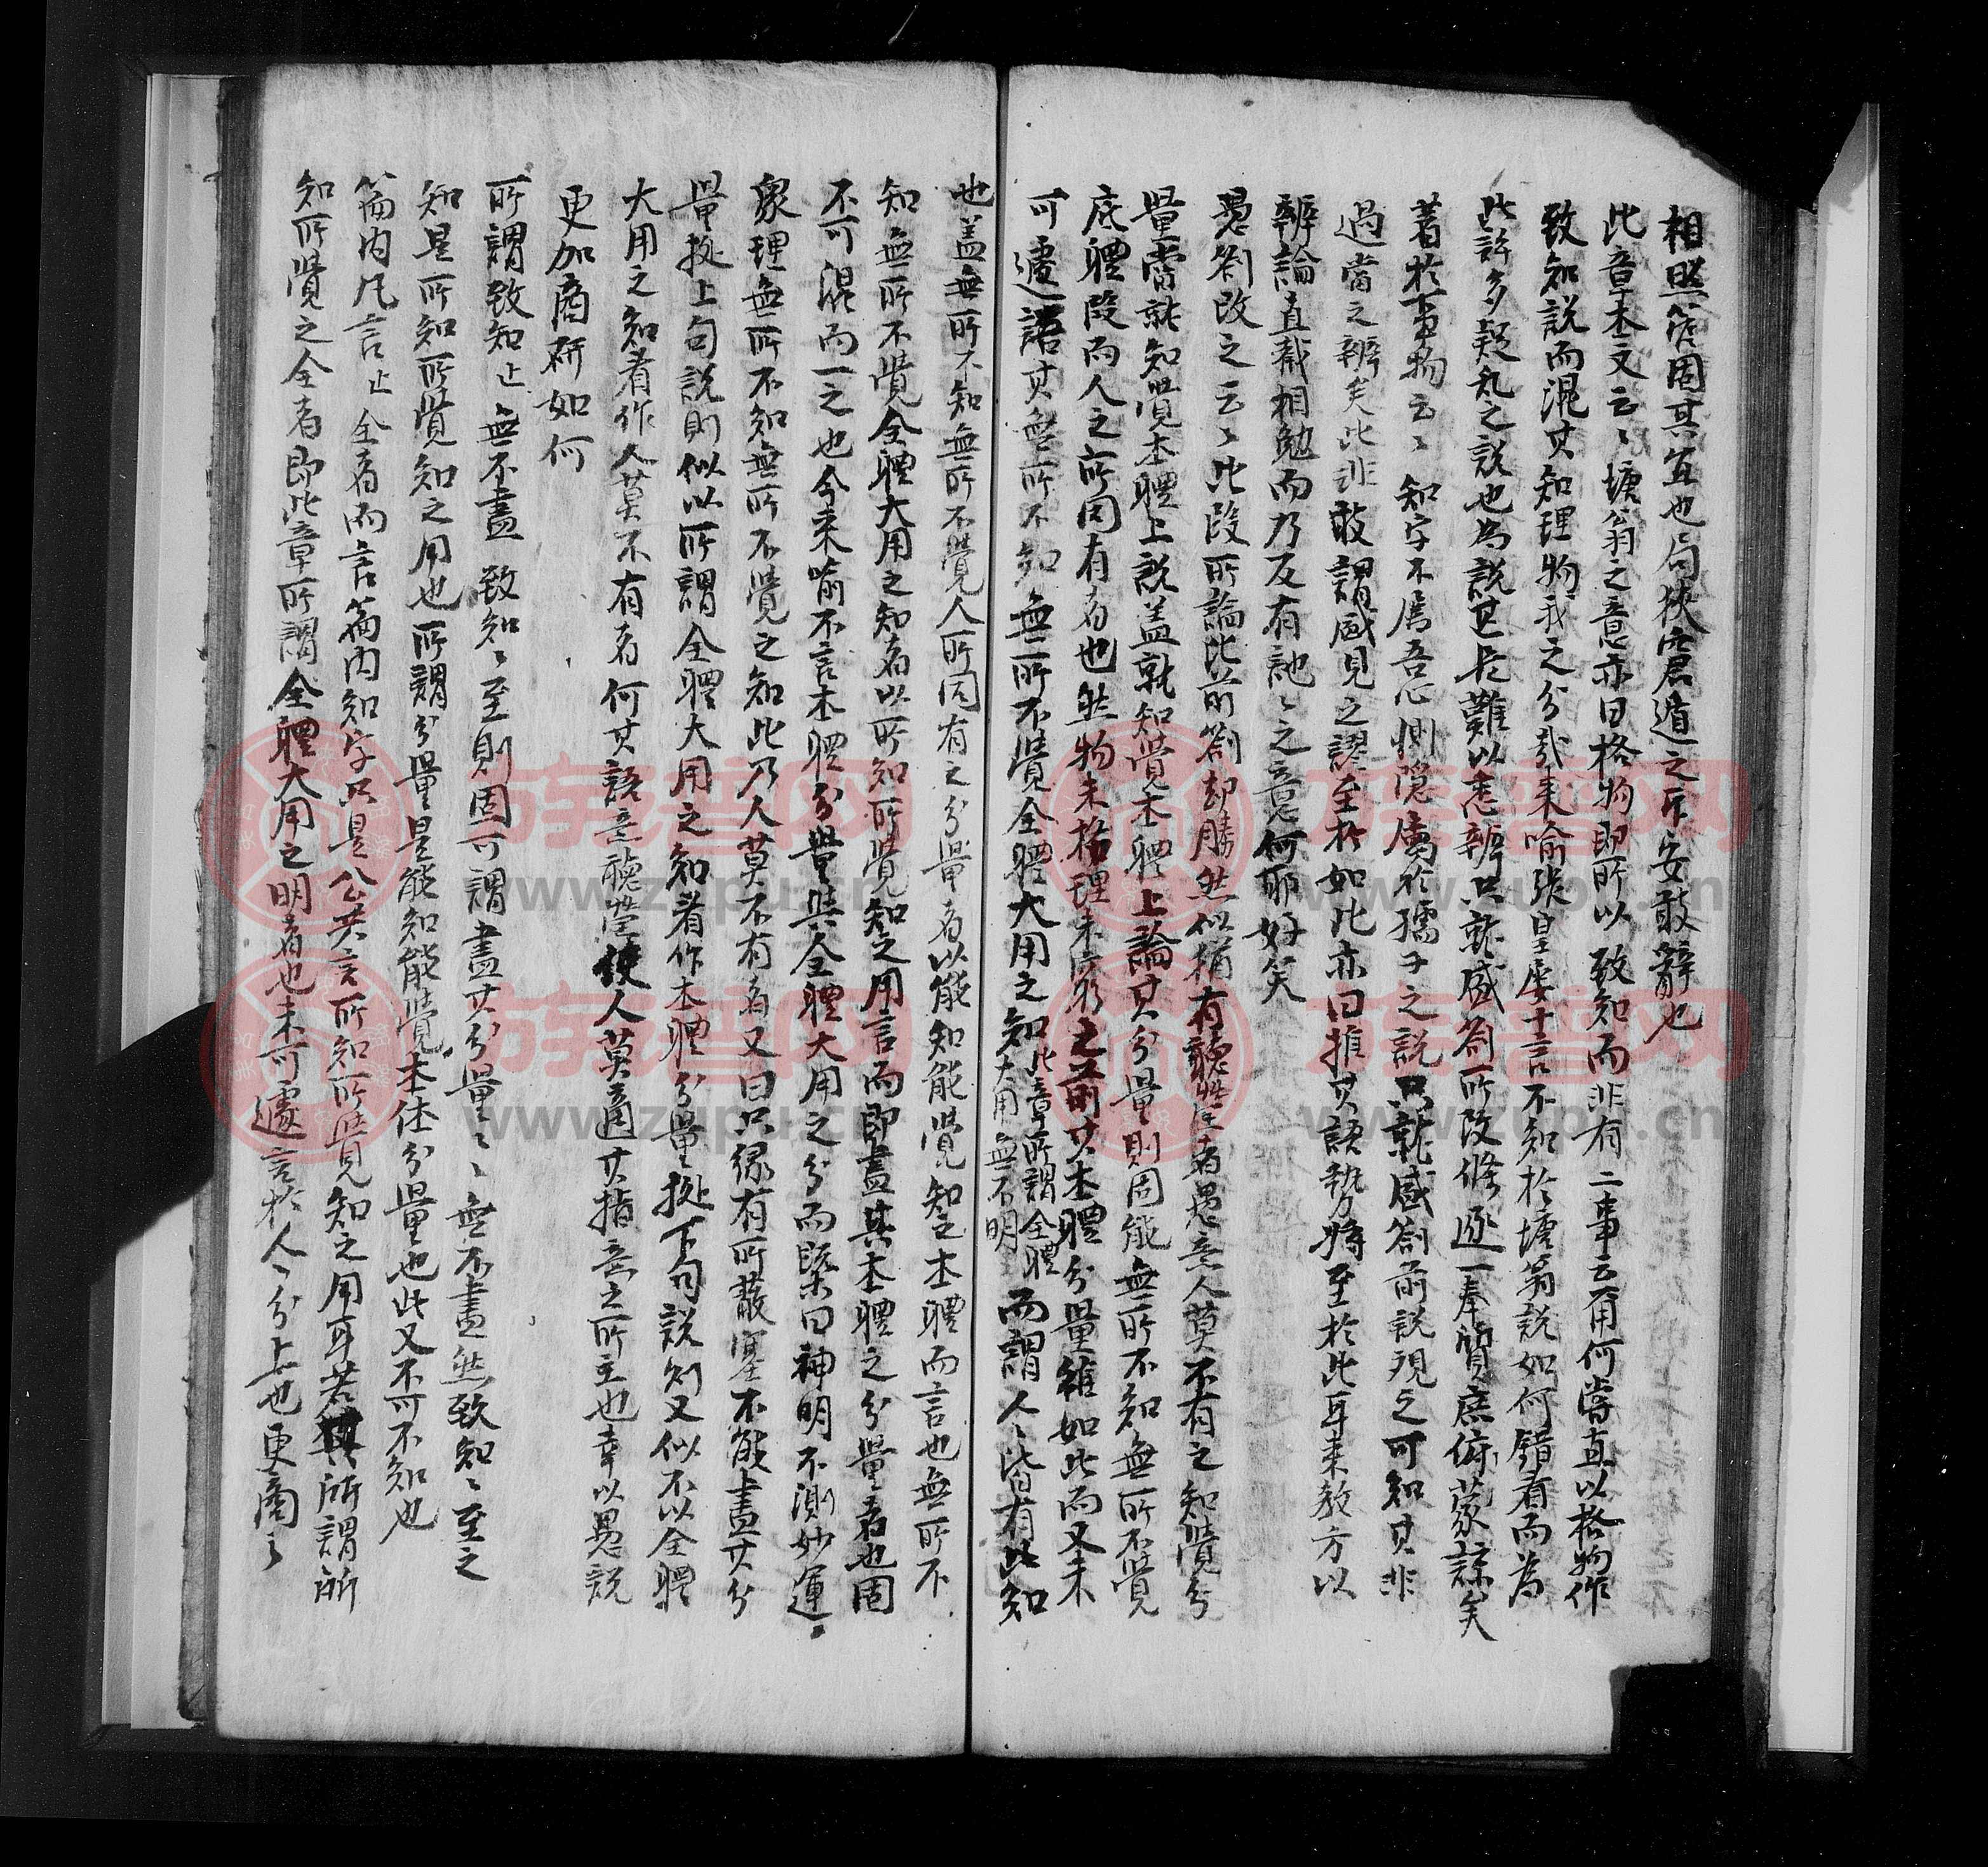 相照管固其宜也局狹窘遁之斥安敢辭也
此章本文云〻塘翁之意亦曰格物即所以致知而非有二事云爾何嘗直以格物作
致知說而混其知理物我之分哉來喻張皇屡十言不知於塘翁說如何錯看而為
此許多疑乱之說也為說甚長難以悉辨只就盛劄所改條逐一奉質庶俯蒙諒矣
著於事物云〻知字不屬吾心惻隐屬於孺子之說只就盛劄前說現之可知其非
過當之辨矣此非敢謂盛見之謬至於如此亦曰推其語勢將至於此耳来教方以
辨論直截相勉而乃反有訑〻之意何耶好笑
愚劄改之云〻此段所論比前劄却勝然似猶有聽瑩者愚意人莫不有之知覺分
量當就知覺本體上說盖就知覺本體上論其分量則固能無所不知無所不覺
底體段而人之所同有者也然物未格理未窮之前其本體分量雖如此而又未
可遽語其無所不知無所不覺全體大用之知此章所謂全體大用無不明而謂人〻皆有此知
也盖無所不知無所不覺人所固有之分量者以能知能覺知之本體而言也無所不
知無所不覺全體大用之知者以所知所覺知之用言而即盡其本體之分量者也固
不可混而一之也今来喻不言本體分量與全體大用之分而槩曰神明不測妙運
衆理無所不知無所不覺之知此乃人莫不有者又曰只緣有所蔽塞不能盡其分
量挻上句說則似以所謂全體大用之知看作本體分量挻下句說則又似不以全體
大用之知看作人莫不有者何其語意聽瑩使人莫適其指意之所主也幸以愚說
更加商硏如何
所謂致知止無不盡 致知〻至則固可謂盡其分量〻〻無不盡然致知〻至之
知是所知所覺知之用也所謂分量是能知能覺本体分量也此又不可不知也
篇內凡言止全者而言篇內知字只是公共言所知所覺知之用耳若其所謂所
知所覺之全者即此章所謂全體大用之明者也未可遽言於人〻分上也更商〻
族譜网
www.zupu.cn
族譜网
www.zupu.cn
族譜网
www.zupu.cn
族譜网
www.zupu.cn